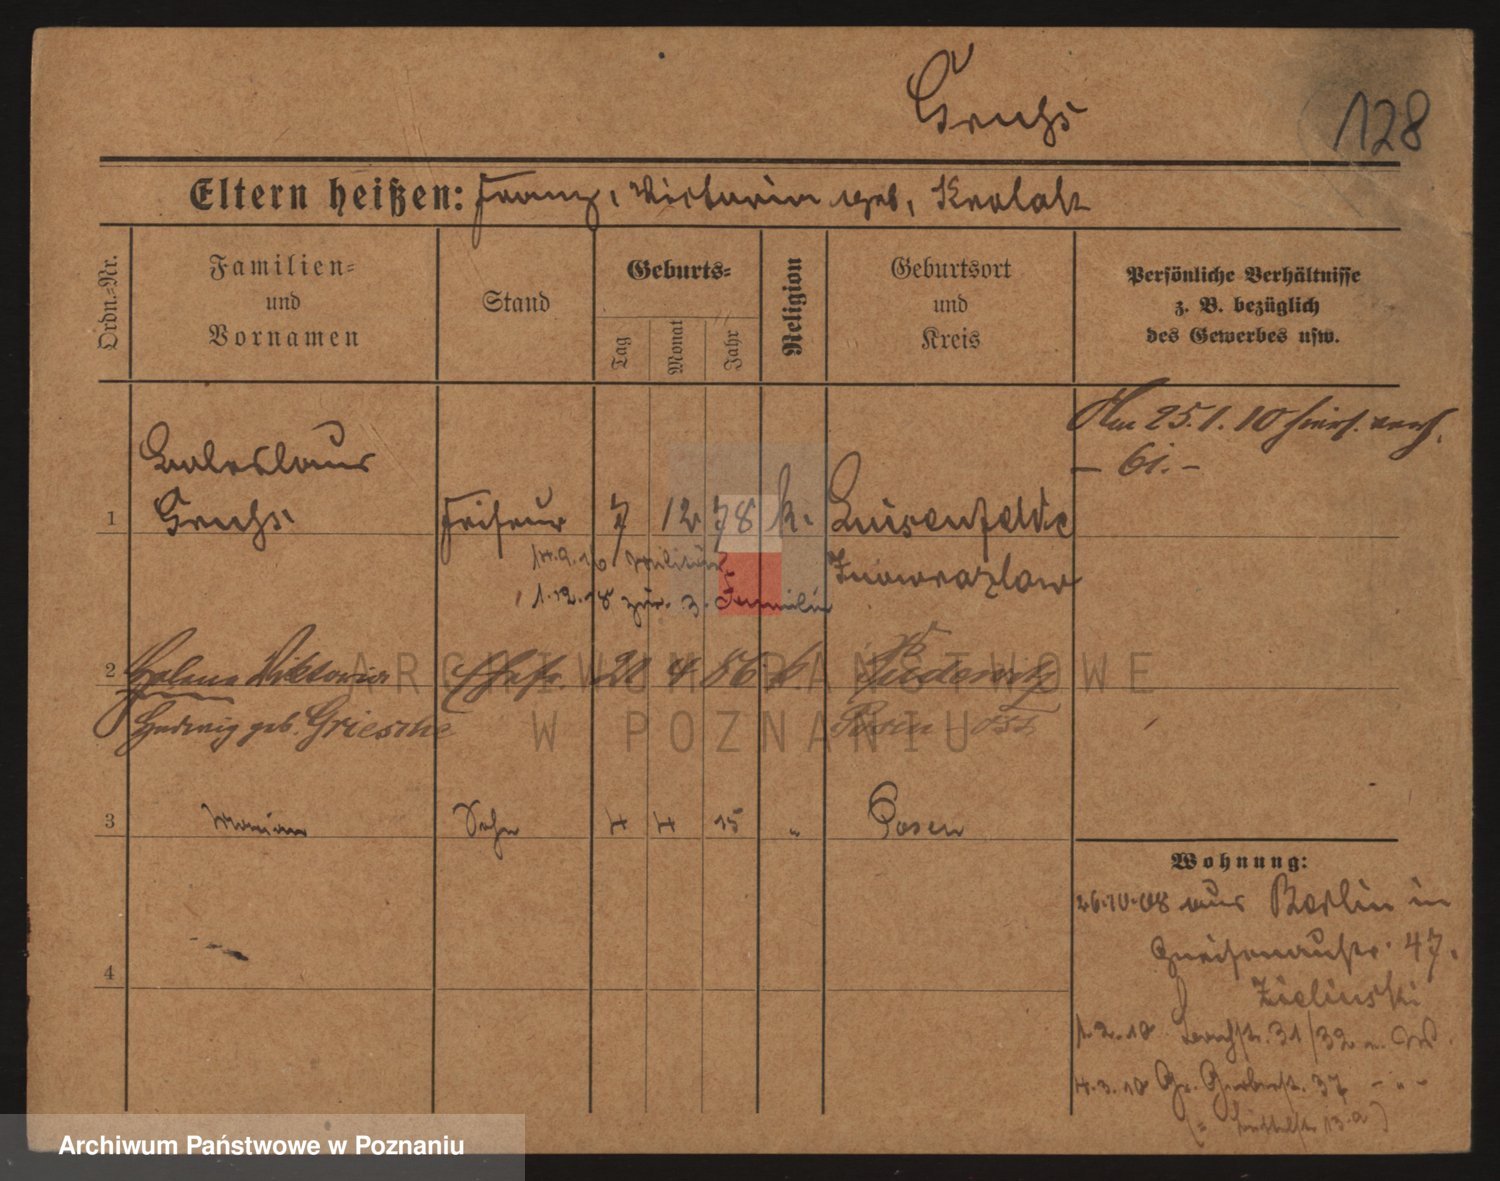 128
Eltern heißen: Franz, Victoria geb. Krolak
Ordn.=Nr.
Familien=
und
Vornamen
Stand
Geburts=
Tag
Monat
Jahr
Religion
Geburtsort
und
Kreis
Persönliche Verhältnisse
z. B. bezüglich
des Gewerbes usw.
Am 25.1.10 hier verh.
Boleslaus
1 Friseur 7 12 78 k. Luisenfelde
14.9.16 Militär
Inowrazlaw
1.12.18 zur. z. Familie
2 Helene Viktoria Ehefr. 21 4 86 k. Pudewitz
Hedwig geb. Griesche Posen Ost
3 Marian Sohn 4 4 15 " Posen
4
Wohnung:
26.10.08 aus Berlin in
Gneisenaustr. 47.
Zielinski
1.2.10 31/32
4.3.10 Gr. Gerberstr. 37 - " -
13.a)
ARCHIWUM PAŃSTWOWE
W POZNANIU
Archiwum Państwowe w Poznaniu